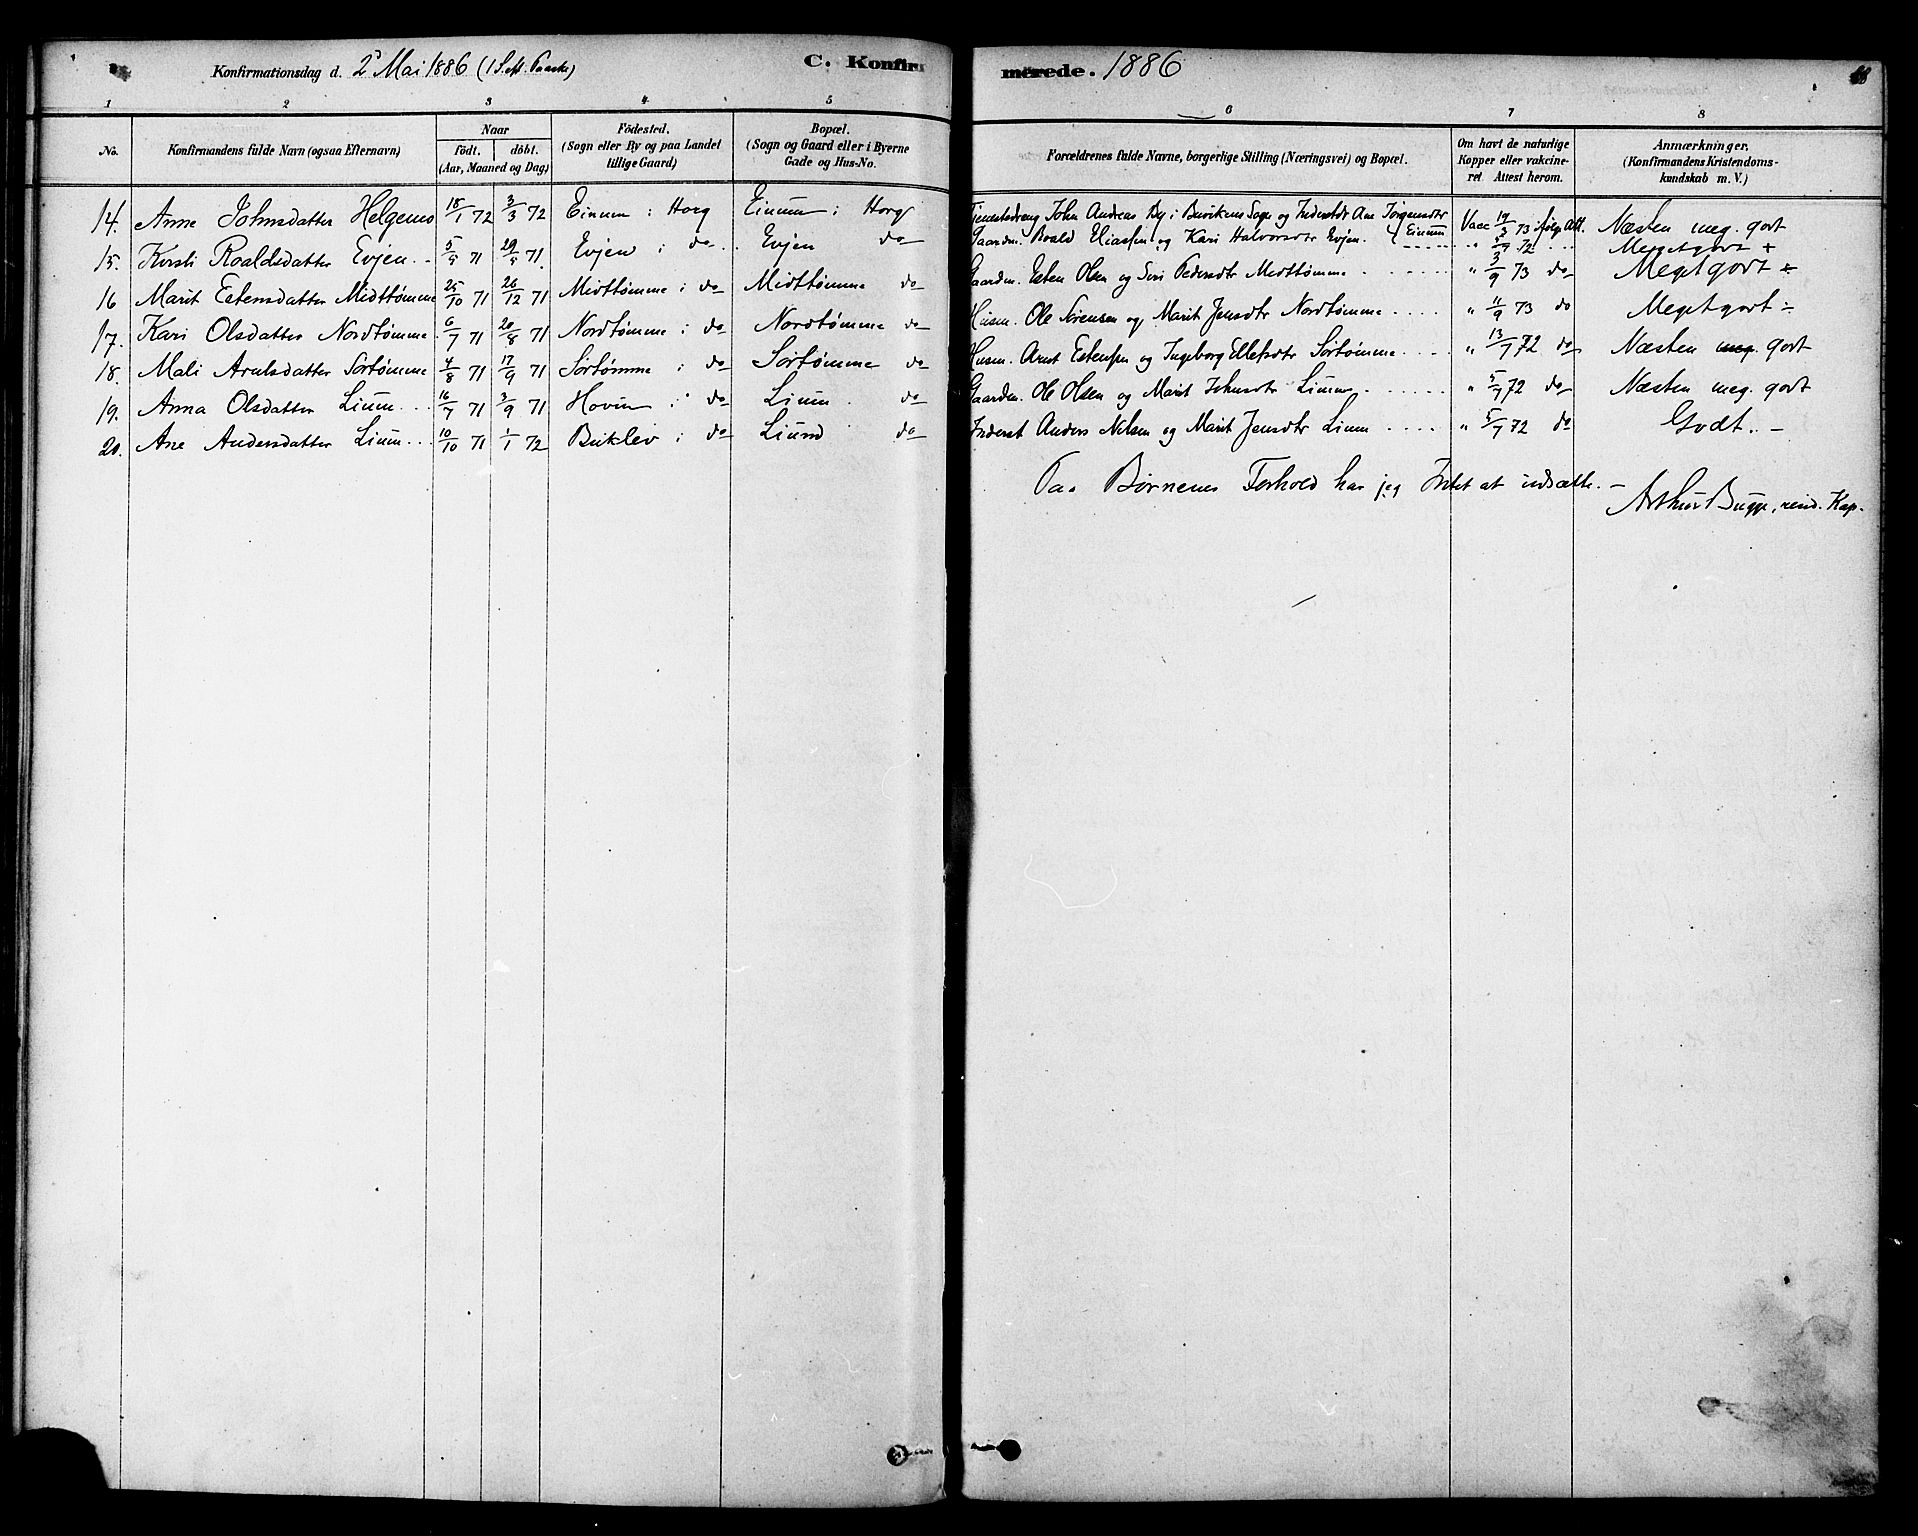 Konfirmationsdag d. 2den Mai 1886 (1 S. eft. Paaske) C. Konfirmerede. 1886 88
1 2 3 4 5 6 7 8
No. Konfirmandens fulde Navn (ogsaa Efternavn) Naar födt. döbt. (Aar, Maaned og Dag) Födested. (Sogn eller By og paa Landet tillige Gaard) Bopæl. (Sogn og Gaard eller i Byerne Gade og Hus-No. Forældrenes fulde Navne, borgerlige Stilling (Næringsvei) og Bopæl. Om havt de naturlige Kopper eller vakcineret. Attest herom. Anmærkninger. (Konfirmandens Kristendomskundskab m. V.)
14. Anne Johnsdatter Helgemo 18/1 72 3/3 72 Einum i Horg Einum i Horg Tjenestedreng John Andreas By i Buvikens Sogn og Inderstdr Ane Jörgensdtr Einum Vacc 19/3 73 ifølge Att. Næsten meg. godt
15. Kirsti Roaldsdatter Evjen 5/5 71 29/5 71. Evjen i do Evjen do Gaardm. Roald Eliassen og Kari Halvorsdtr Evjen. " 5/7 72 Meget godt +
16 Marit Estensdatter Midttømme 25/10 71 26/12 71 Midttømme i do Midttømme do Gaardm. Esten Olsen og Siri Pedersdtr Midttømme " 3/9 73 do Meget godt ÷
17. Kari Olsdatter Nordtømme 6/7 71 20/8 71 Nordtømme i do Nordtømme do Husm. Ole Sørensen og Marit Jensdtr Nordtømme " 11/9 73 do Meget godt ÷
18. Mali Arntsdatter Sørtømme 4/8 71 17/9 71 Sørtømme i do Sørtømme do Husm. Arnt Estensen og Ingeborg Ellefsdtr Sørtømme " 13/7 72 do Næsten meg. godt
19. Anna Olsdatter Lium 16/7 71 3/9 71 Hovin i do Lium do Gaardm. Ole Olsen og Marit Johnsdtr Lium " 5/7 72 do Næsten meg. godt
20. Ane Andersdatter Lium 10/10 71 1/1 72 Buklev i do Liund do Inderst Anders Nilsen og Marit Jensdtr Lium " 5/7 72 do Godt. –
Paa Børnenes Forhold har jeg Intet at udsætte. –
Arthur Bugge, resid. Kap.